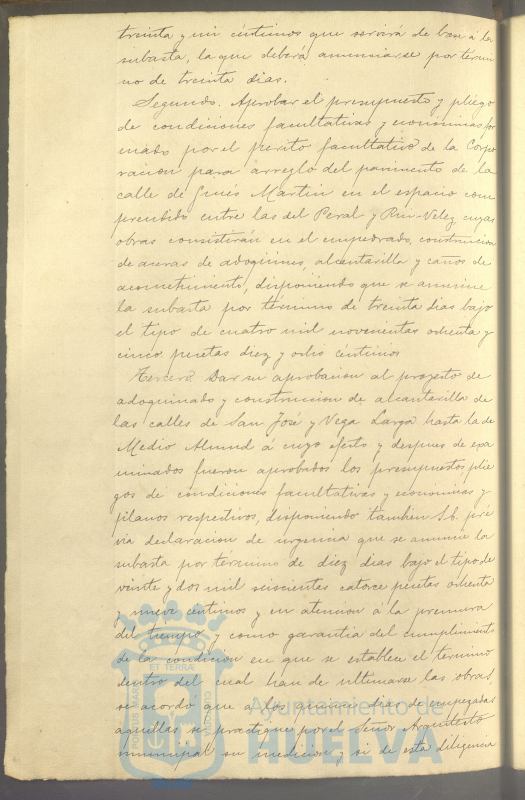 treinta y un céntimos que servirá de base á la
subasta, la que deberá anunciarse por térmi
no de treinta dias.
Segundo. Aprobar el presupuesto y pliego
de condiciones facultativas y economicas for
mado por el perito facultativo de la Corpo
racion para arreglo del pavimento de la
calle de Ginés Martin en el espacio com
prendido entre las del Peral y Rui-Velez cuyas
obras consistirán en el empedrado, construccion
de aceras de adoquines, alcantarilla y caños de
acometimiento, disponiendo que se anuncie
la subasta por término de treinta dias bajo
el tipo de cuatro mil novecientas ochenta y
cinco pesetas diez y ocho céntimos
Tercero. Dar su aprobacion al proyecto de
adoquinado y construccion de alcantarilla de
las calles de San José y Vega Larga hasta la de
Medio Almud á cuyo efecto y despues de exa
minados fueron aprobados los presupuestos plie
gos de condiciones facultativas y economicas y
planos respectivos, disponiendo tambien S.E. pre
via declaracion de urgencia que se anuncie la
subasta por término de diez dias bajo el tipo de
veinte y dos mil seiscientas catorce pesetas ochenta
y nueve céntimos y en atencion á la premura
del tiempo y como garantia del cumplimiento
de la condicion en que se establece el término
dentro del cual han de ultimarse las obras,
se acordó que á los quince dias de empezadas
aquellas se practique por el Señor Arquitecto
municipal su medicion y si de esta diligencia
PORTUS MARIS
ET TERRAE
CUSTODIA
Ayuntamiento de
HUELVA